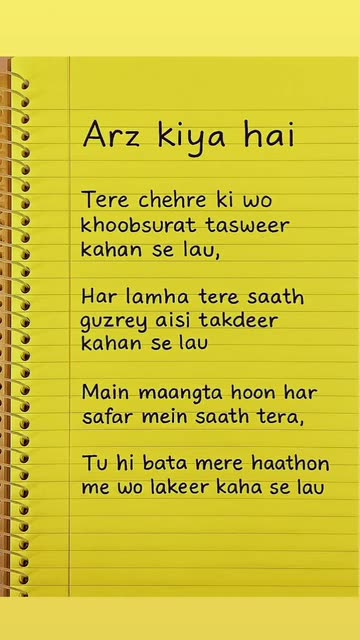 Arz kiya hai
Tere chehre ki wo
khoobsurat tasweer
kahan se lau,
Har lamha tere saath
guzrey aisi takdeer
kahan se lau
Main maangta hoon har
safar mein saath tera,
Tu hi bata mere haathon
me wo lakeer kaha se lau